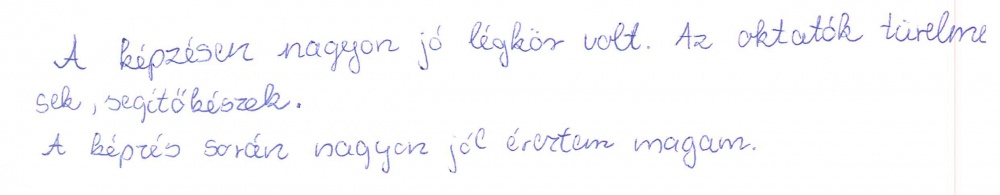 A képzésen nagyon jó légkör volt. Az oktatók türelme
sek, segítőkészek.
A képzés során nagyon jól éreztem magam.